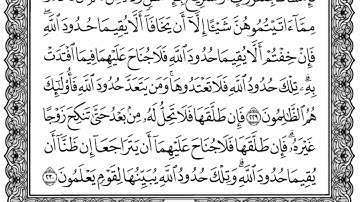 مِمَّآ ءَاتَيْتُمُوهُنَّ شَيْـًٔا إِلَّآ أَن يَخَافَآ أَلَّا يُقِيمَا حُدُودَ ٱللَّهِ ۖ
فَإِنْ خِفْتُمْ أَلَّا يُقِيمَا حُدُودَ ٱللَّهِ فَلَا جُنَاحَ عَلَيْهِمَا فِيمَا ٱفْتَدَتْ
بِهِۦ ۗ تِلْكَ حُدُودُ ٱللَّهِ فَلَا تَعْتَدُوهَا ۚ وَمَن يَتَعَدَّ حُدُودَ ٱللَّهِ فَأُو۟لَـٰٓئِكَ
هُمُ ٱلظَّـٰلِمُونَ ٢٢٩ فَإِن طَلَّقَهَا فَلَا تَحِلُّ لَهُۥ مِنۢ بَعْدُ حَتَّىٰ تَنكِحَ زَوْجًا
غَيْرَهُۥ ۗ فَإِن طَلَّقَهَا فَلَا جُنَاحَ عَلَيْهِمَآ أَن يَتَرَاجَعَآ إِن ظَنَّآ أَن
يُقِيمَا حُدُودَ ٱللَّهِ ۗ وَتِلْكَ حُدُودُ ٱللَّهِ يُبَيِّنُهَا لِقَوْمٍ يَعْلَمُونَ ٢٣٠